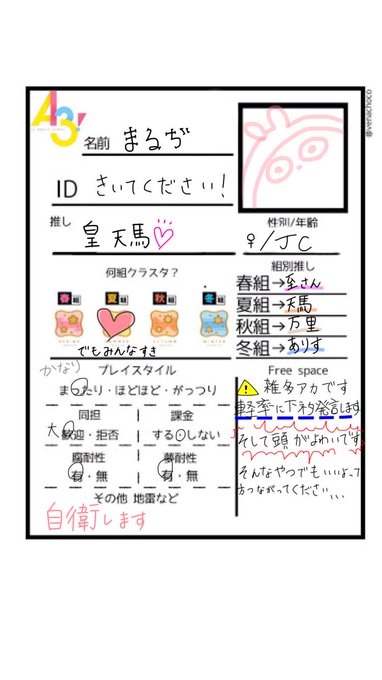 A3!
@venachoco
名前 まるぢ
ID きいてください!
推し
皇 天馬♡
性別/年齢
♀/JC
何組クラスタ?
春組 夏組 秋組 冬組
でもみんなすき
組別推し
春組→至さん
夏組→天馬
秋組→万里
冬組→ありす
プレイスタイル
かなり
まったり・ほどほど・がっつり
同担 課金
大歓迎・拒否 する・しない
腐耐性 夢耐性
有・無 有・無
その他 地雷など
自衛します
Free space
⚠雑多アカです
軽率に下ネタ発言します
そして頭がよわいです
そんなやつでもいいよって
方つながってください...